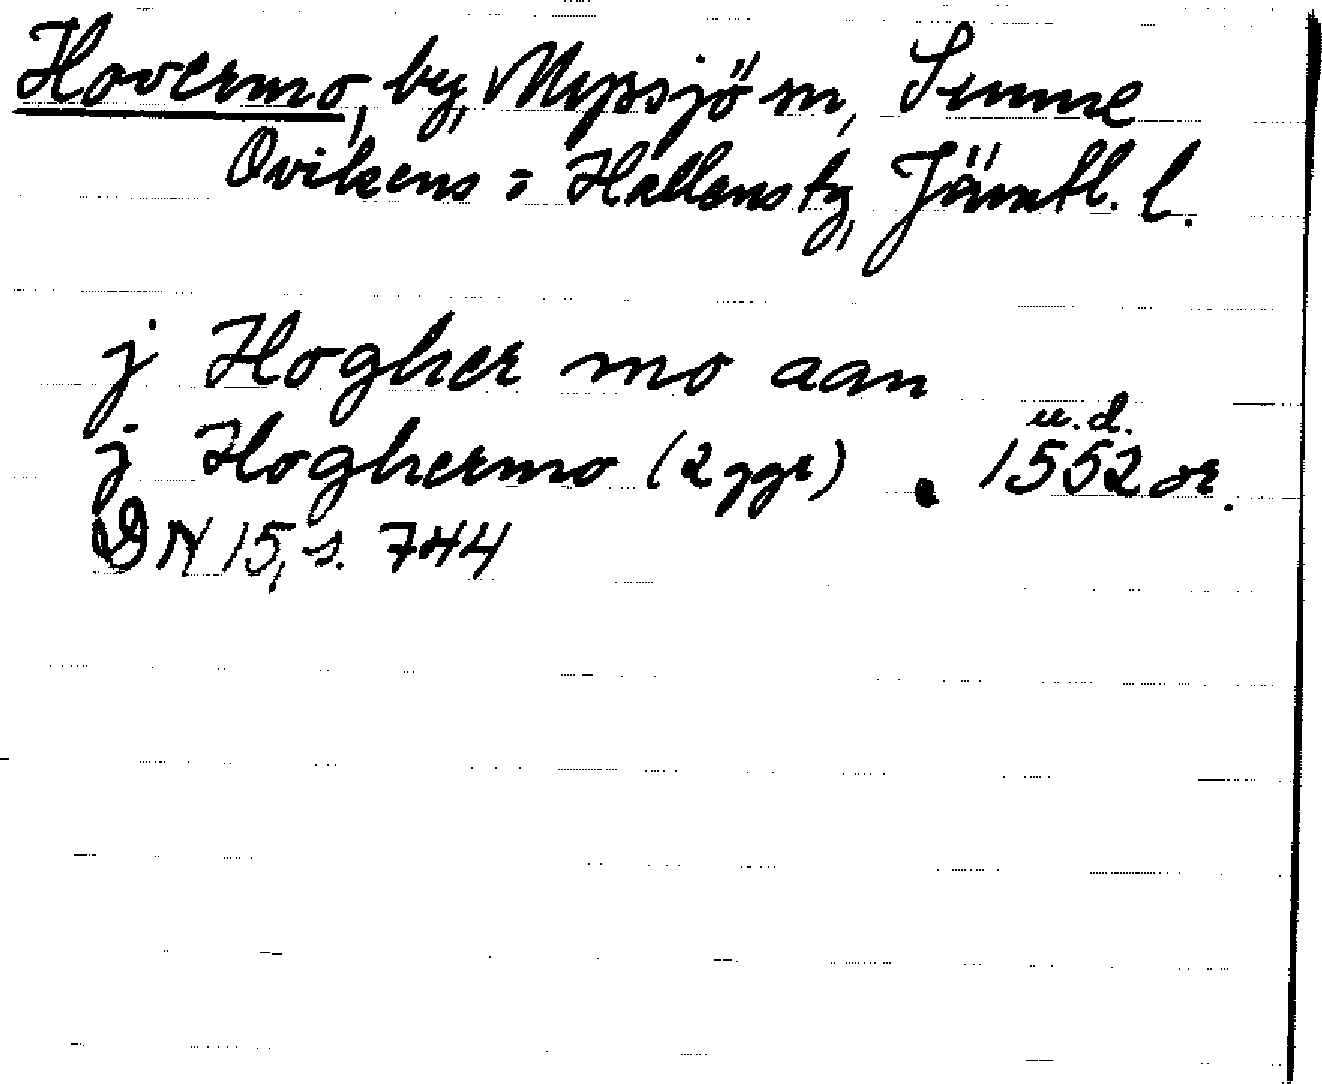 Hovermo, by, Myssjö sn, Sunne
Ovikens o Hallens tg, Jämtl. l.
j Hogher mo aan
j Hoghermo (2 ggr) 1552 or.
u.d.
DN 15, s. 744